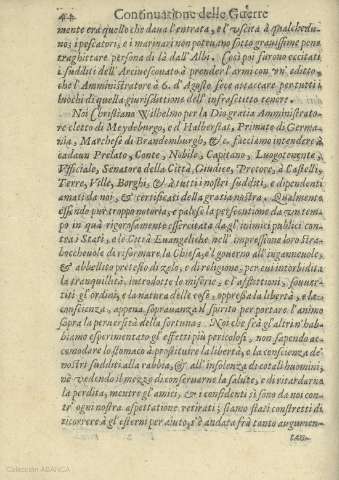 44 Continuatione delle Guerre
mente era quello che daua l'entrata, e l'vscita à qualchedu-
no; i pescatori, e i marinari non poteuano sotto grauissime pene
traghittare persona di là dall'Albi. Così poi furono eccitati
i sudditi dell'Arciuescouato à prender l'armi con vn' editto,
che l'Amministratore à 6. d'Agosto fece attaccare per tutti i
luochi di quella giurisdittione dell'infrascritto tenore.
Noi Christiano Wilhelmo per la Dio gratia Amministrato-
re eletto di Meydeburgo, e d'Halberstat, Primate di Germa-
nia, Marchese di Brandemburgh, &c. facciamo intendere à
cadaun Prelato, Conte, Nobile, Capitano, Luogotenente,
Vfficiale, Senatore della Città, Giudice, Pretore, à Castelli,
Terre, Ville, Borghi, & à tutti i nostri sudditi, e dipendenti
amati da noi, & certificati della gratia nostra. Qualmente
essendo pur troppo notoria, e palese la persecutione da vn tem-
po in quà rigorosamente essercitata da gl'inimici publici con-
tra i Stati, e le Città Euangeliche nell'impressione loro stra-
bocheuole di riformare la Chiesa, e'l gouerno all'ingannevole,
& abbellito pretesto di zelo, e di religione, per cui intorbidita
la tranquillità, introdotte le miserie, e l'afflittioni, souuer-
titi gl'ordini, e la natura delle cose, oppressa la libertà, e la
conscienza, appena soprauanza il spirito per portare l'animo
sopra la peruersità della fortuna. Noi che frà gl'altri n'hab-
biamo esperimentato gl'effetti più pericolosi, non sapendo ac-
comodare lo stomaco à prostituire la libertà, e la conscienza de'
nostri sudditi alla rabbia, & all'insolenza di cotali huomini,
nè vedendo il mezzo di conseruarne la salute, e di ristorarne
la perdita, mentre gl'amici, & i confidenti si sono da noi con-
tr' ogni nostra aspettatione retirati; siamo stati constretti di
ricorrere à gl'esterni per aiuto, s'è andata frà tanto augumen-
tan-
Colección ABANCA